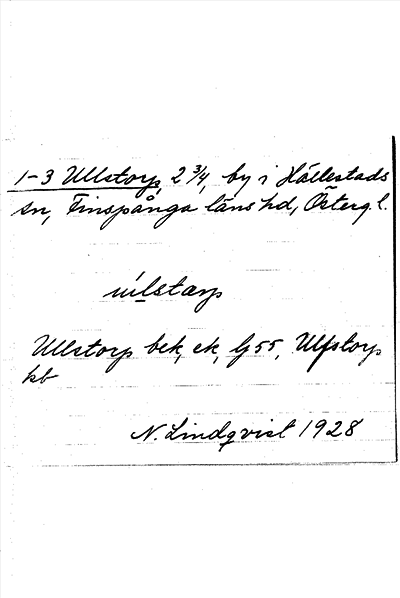 1-3 Ullstorp, 2 3/4, by i Hällestads
sn, Finspånga läns hd, Österg.l.
Ullstorp bek, ek, Gj 55, Ulfstorp
kb
N. Lindqvist 1928